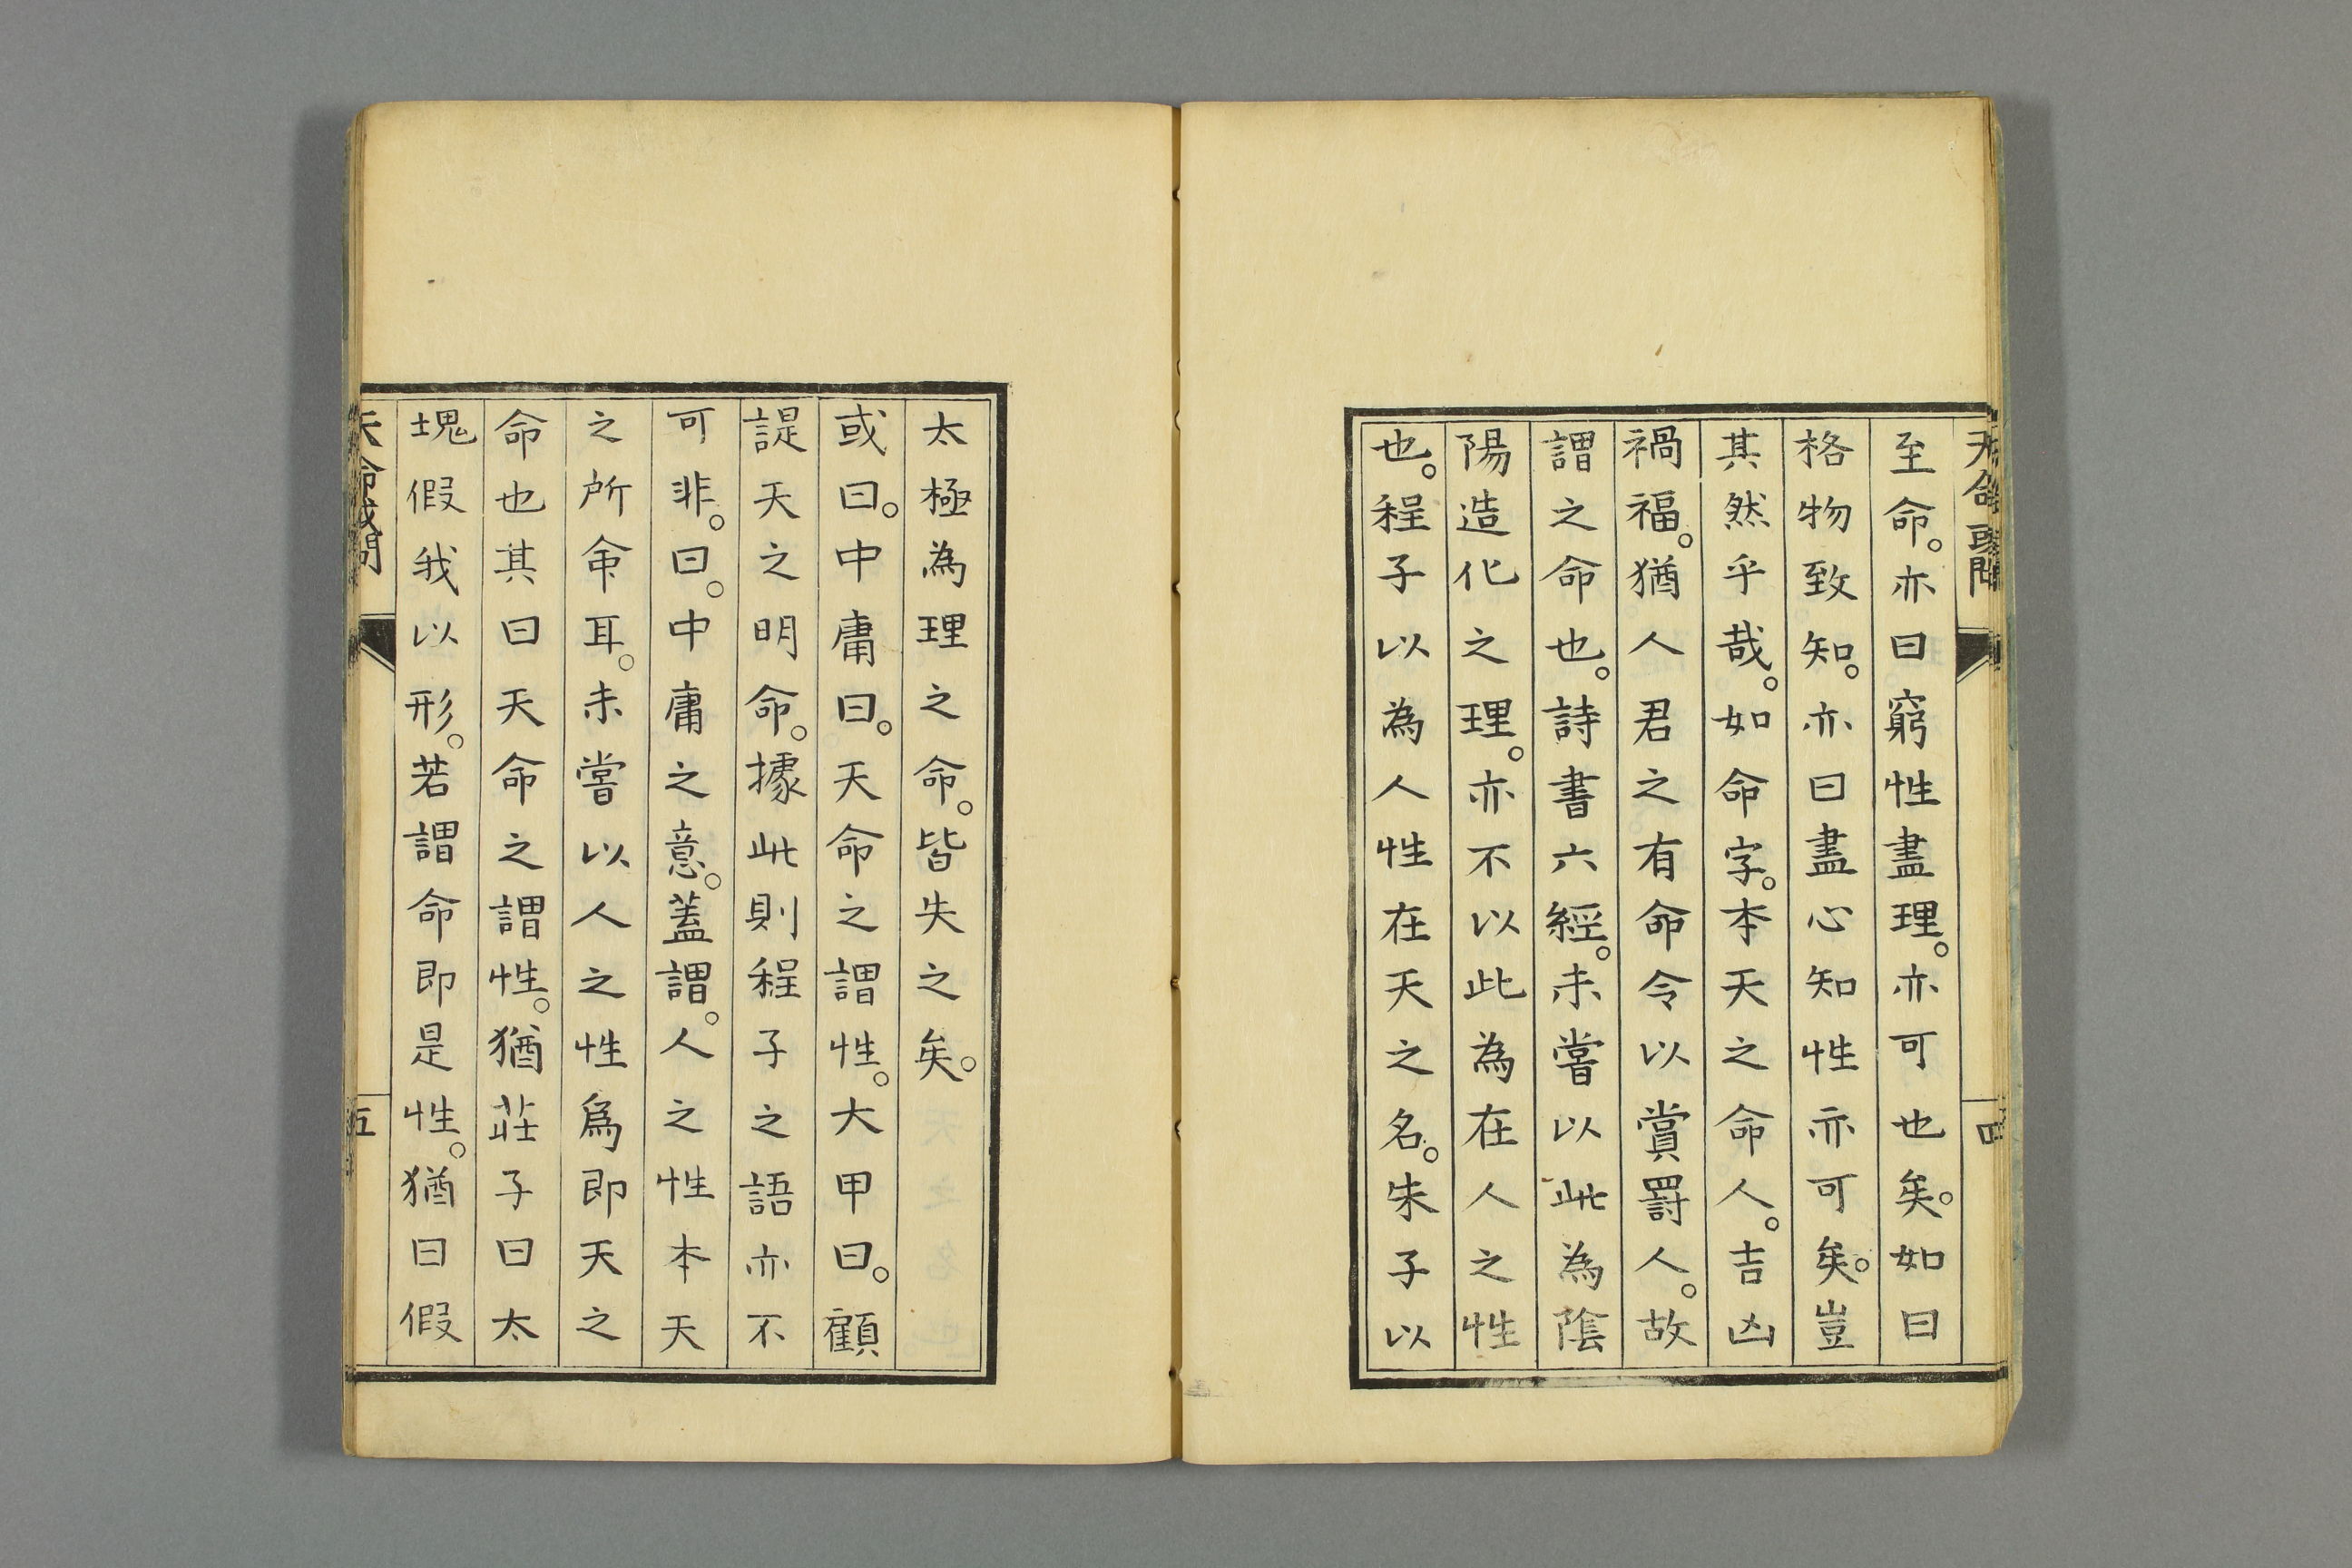 至命。亦曰窮性盡理。亦可也矣。如曰
格物致知。亦曰盡心知性亦可矣。豈
其然乎哉。如命字。本天之命人。吉凶
禍福。猶人君之有命令以賞罸人。故
謂之命也。詩書六經。未嘗以此為陰
陽造化之理。亦不以此為在人之性
也。程子以為人性在天之名。朱子以
四
太極為理之命。皆失之矣。
或曰。中庸曰。天命之謂性。大甲曰。顧
諟天之明命。據此則程子之語亦不
可非。曰。中庸之意。蓋謂。人之性本天
之所命耳。未嘗以人之性爲即天之
命也其曰天命之謂性。猶莊子曰太
塊假我以形。若謂命即是性。猶曰假
天命或問
五